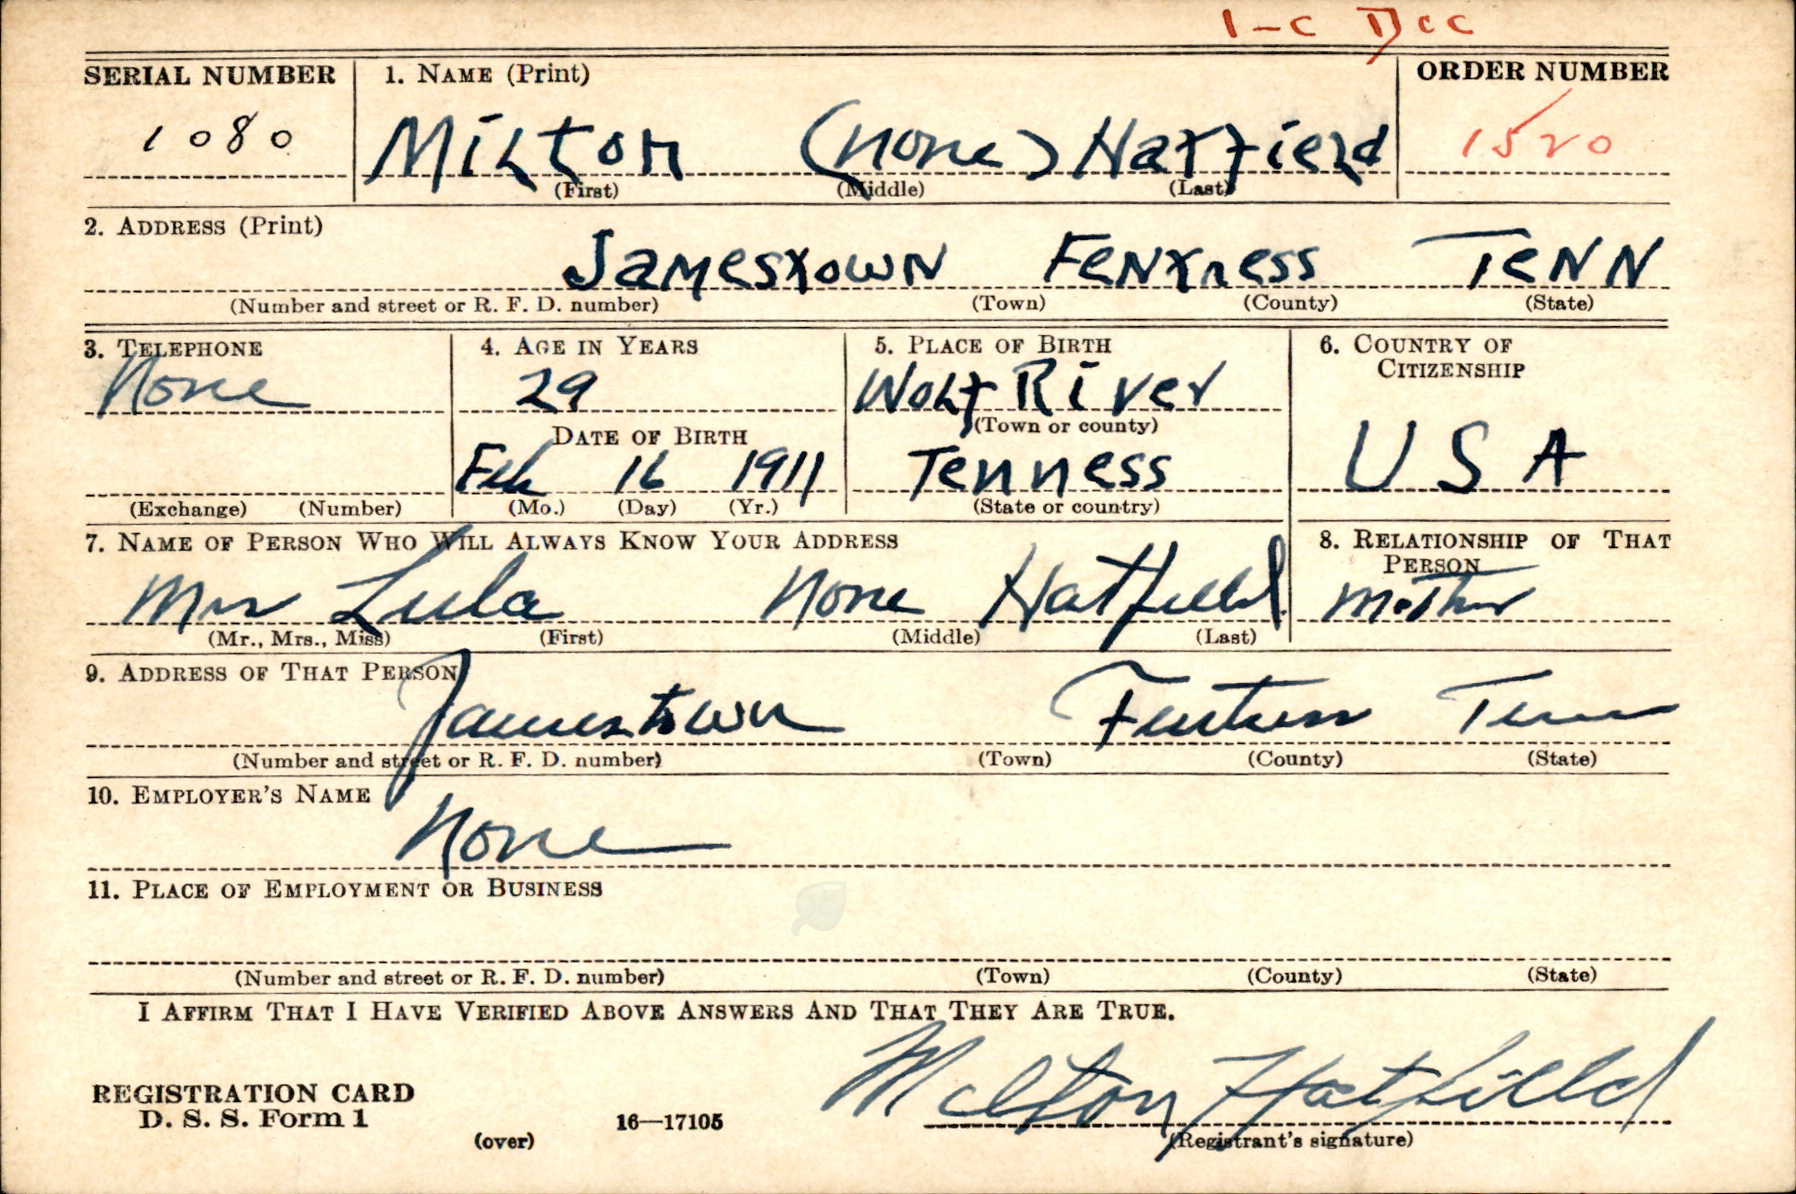 1-C Dcc
SERIAL NUMBER 1. NAME (Print) ORDER NUMBER
1080 Milton (none) Hatfield 1520
(First) (Middle) (Last)
2. ADDRESS (Print)
Jamestown Fentress TENN
(Number and street or R. F. D. number) (Town) (County) (State)
3. TELEPHONE 4. AGE IN YEARS 5. PLACE OF BIRTH 6. COUNTRY OF CITIZENSHIP
None 29 Wolf River
DATE OF BIRTH (Town or county)
Feb 16 1911 Tenness USA
(Exchange) (Number) (Mo.) (Day) (Yr.) (State or country)
7. NAME OF PERSON WHO WILL ALWAYS KNOW YOUR ADDRESS 8. RELATIONSHIP OF THAT PERSON
Mrs Lula None Hatfield Mother
(Mr., Mrs., Miss) (First) (Middle) (Last)
9. ADDRESS OF THAT PERSON
Jamestown Fentress Tenn
(Number and street or R. F. D. number) (Town) (County) (State)
10. EMPLOYER'S NAME
None
11. PLACE OF EMPLOYMENT OR BUSINESS
(Number and street or R. F. D. number) (Town) (County) (State)
I AFFIRM THAT I HAVE VERIFIED ABOVE ANSWERS AND THAT THEY ARE TRUE.
Milton Hatfield
REGISTRATION CARD
D. S. S. Form 1 16—17105
(over) (Registrant's signature)